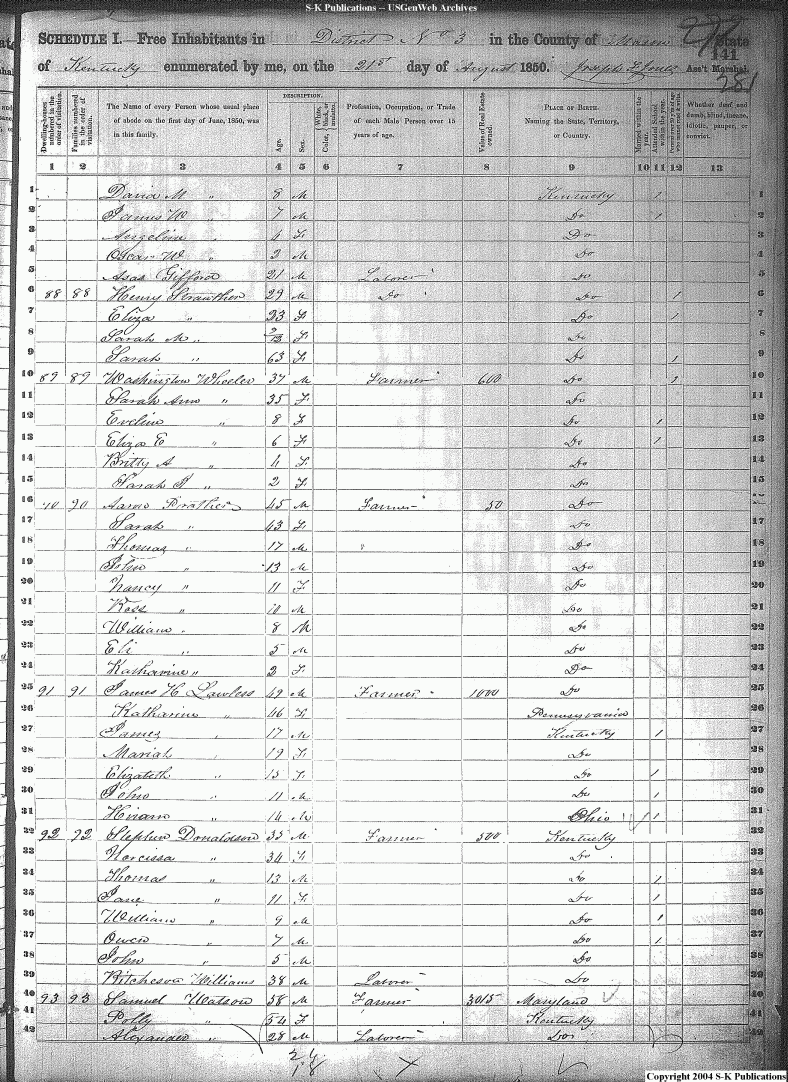 S-K Publications -- USGenWeb Archives
SCHEDULE I.—Free Inhabitants in District No 3 in the County of Mason State
of Kentucky enumerated by me, on the 21st day of August 1850. Ass't Marshal
141
281
Dwelling-houses numbered in the order of visitation.
Families numbered in the order of visitation.
The Name of every Person whose usual place of abode on the first day of June, 1850, was in this family.
DESCRIPTION.
Age.
Sex.
Color, White, black, or mulatto.
Profession, Occupation, or Trade of each Male Person over 15 years of age.
Value of Real Estate owned.
PLACE OF BIRTH. Naming the State, Territory, or Country.
Married within the year.
Attended School within the year.
Whether deaf and dumb, blind, insane, idiotic, pauper, or convict.
1 2 3 4 5 6 7 8 9 10 11 12 13
1 David M " 8 M Kentucky 1 1
2 James W " 7 M Do 1 2
3 Angeline " 4 F Do 3
4 Oscar W " 2 M Do 4
5 Asas Gifford 21 M Laborer Do 5
6 88 88 Henry Strauther 29 M Do Do 1 6
7 Eliza " 23 F Do 1 7
8 Sarah M " 2/12 F Do 8
9 Sarah " 63 F Do 1 9
10 89 89 Washington Wheeler 37 M Farmer 600 Do 1 10
11 Sarah Ann " 35 F Do 11
12 Eveline " 8 F Do 1 12
13 Eliza E " 6 F Do 1 13
14 Britty A " 4 F Do 14
15 Sarah " 2 F Do 15
16 90 90 Prather 45 M Farmer 50 Do
17 Sarah " 43 F Do 17
18 Thomas " 17 M Do 18
19 John " 13 M Do 19
20 Nancy " 11 F Do 20
21 Ross " 10 M Do 21
22 William " 8 M Do 22
23 Eli " 5 M Do 23
24 Katharine " 2 F Do 24
25 91 91 James H Lawless 49 M Farmer 1000 Do 25
26 Katharine " 46 F Pennsylvania 26
27 James " 17 M Kentucky 1 27
28 Mariah " 19 F Do 28
29 Elizabeth " 15 F Do 1 29
30 John " 11 M Do 1 30
31 Hiram " 14 M Ohio 1 31
32 92 92 Stephen Donaldson 35 M Farmer 500 Kentucky 32
33 Narcissa " 34 F Do 33
34 Thomas " 13 M Do 1 34
35 Jane " 11 F Do 1 35
36 William " 9 M Do 1 36
37 Owen " 7 M Do 1 37
38 John " 5 M Do 38
39 Ritcheson Williams 38 M Laborer Do 39
40 93 93 Samuel Watson 58 M Farmer 3015 Maryland 40
41 Polly " 54 F Kentucky 41
42 Alexander " 28 M Laborer Do 42
Copyright 2004 S-K Publications